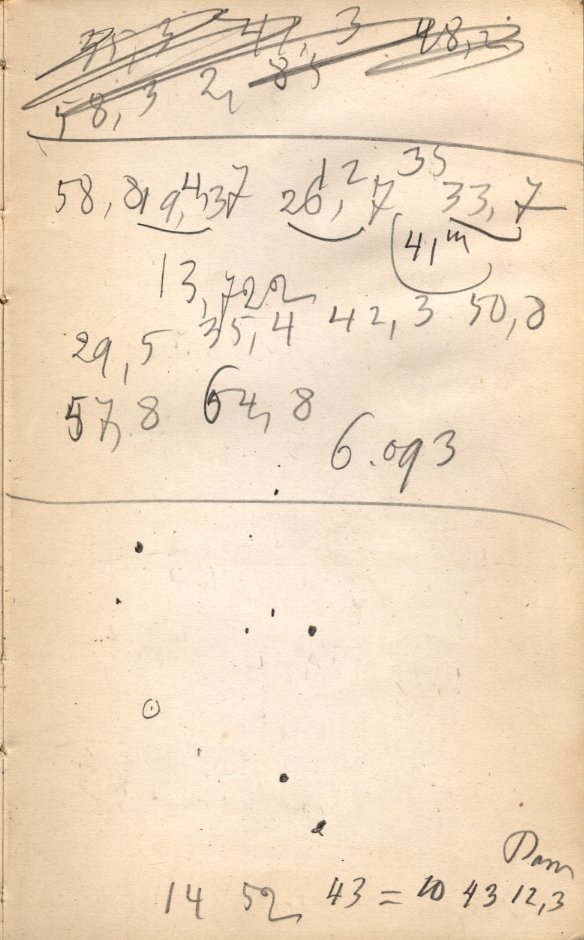 41,3 48,2
58,3 2, 85
58,8 19,37 26,7 33,7
4 12 35
41 m
13,722
29,5 35,4 42,3 50,8
57,8 64,8
6.093
14 52 43 = 10 43 12,3